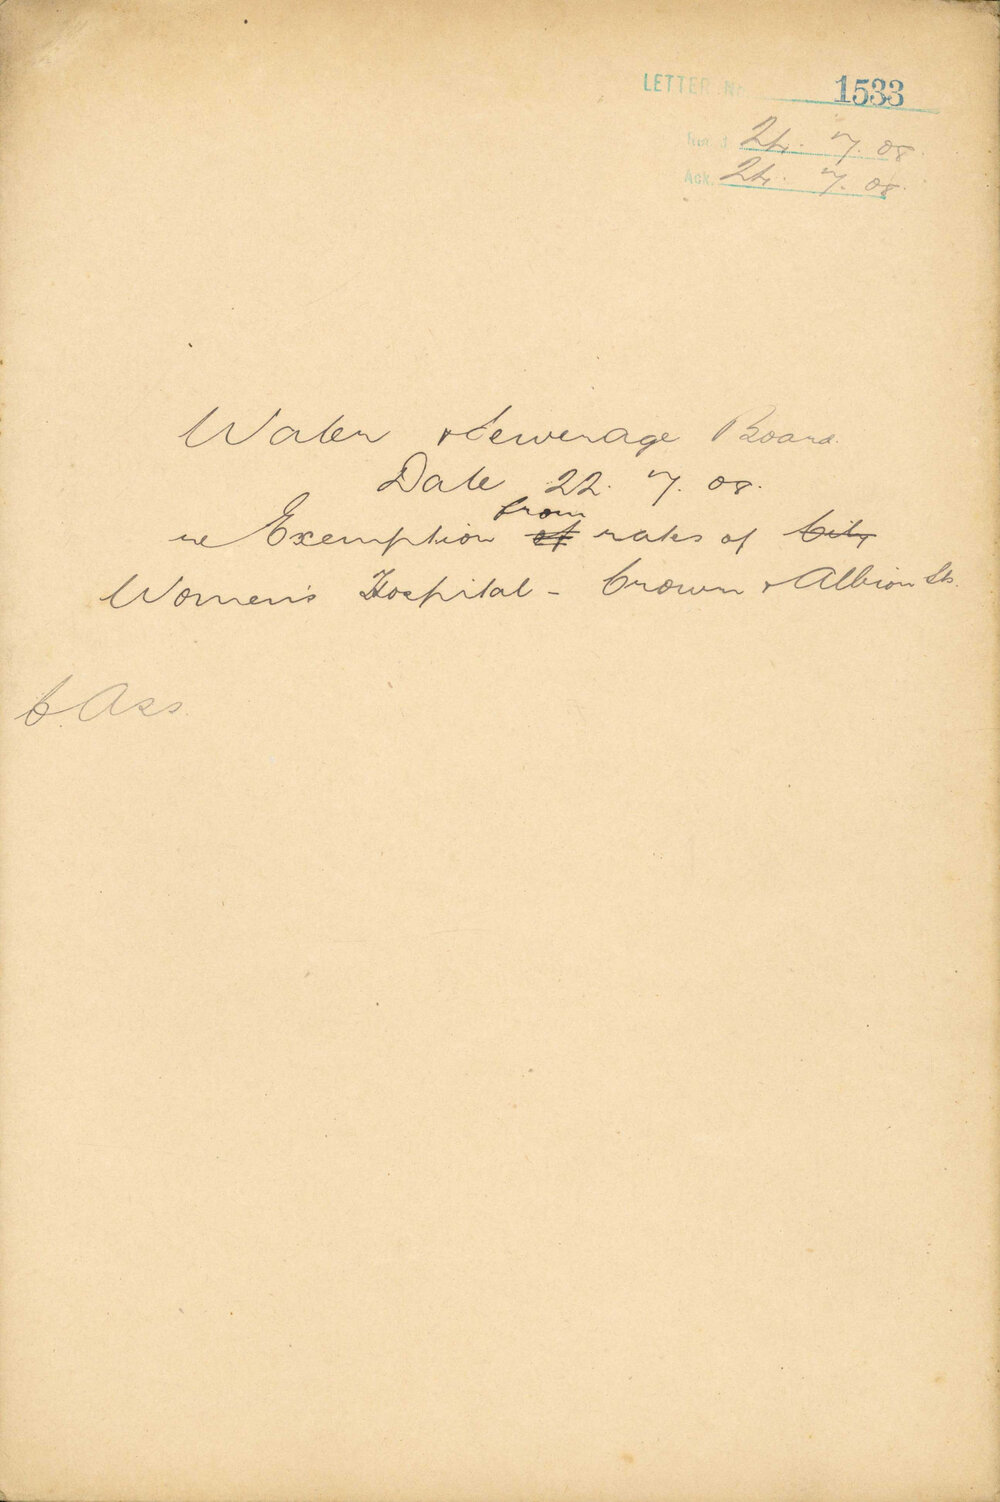 LETTER No 1533
Rec'd 24. 7. 08.
Ack. 24. 7. 08.
Water & Sewerage Board.
Date 22. 7. 08.
from
re Exemption of rates of City
Women's Hospital - Crown & Albion Sts.
C. Ass.